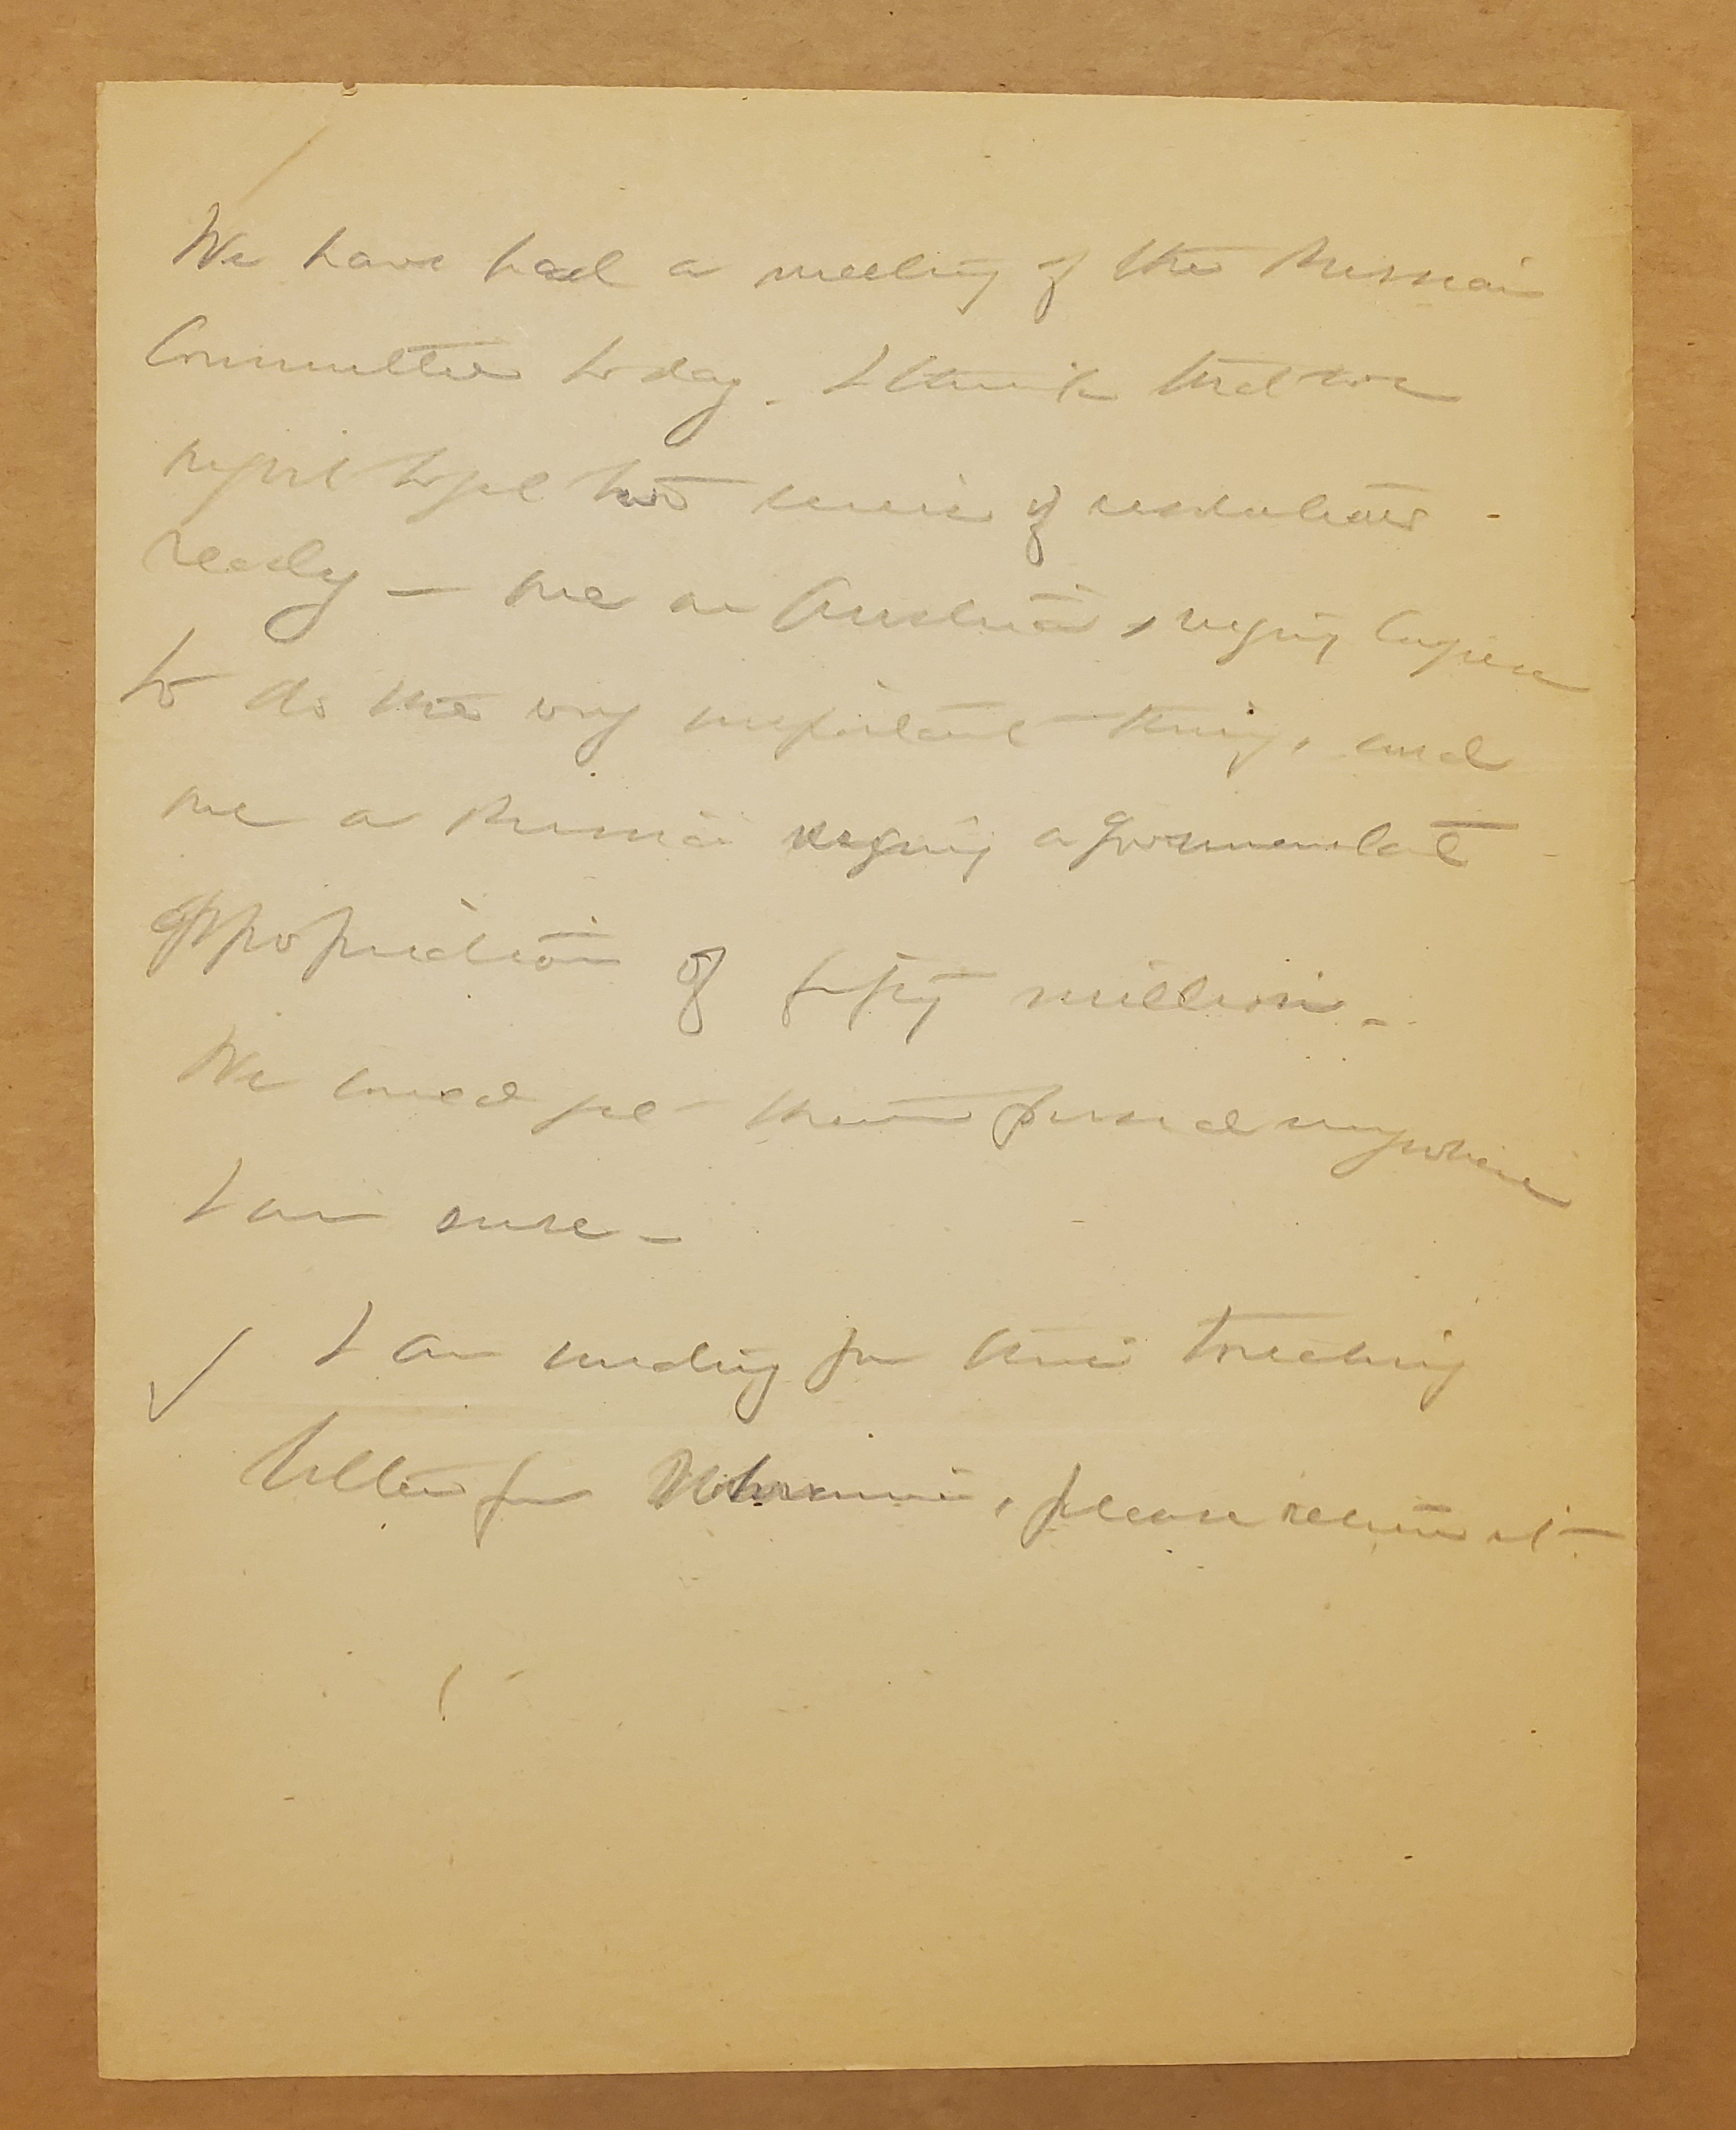 We have had a meeting of the Russian
Committee to day. I think that we
might to get two series of resolutions
ready — one on Austria, urging Congress
to do the very important thing, and
one on Russia urging a governmental
appropriation of fifty million.
We could get them passed anywhere
I am sure —
I am sending for this touching
letter from, please return it —